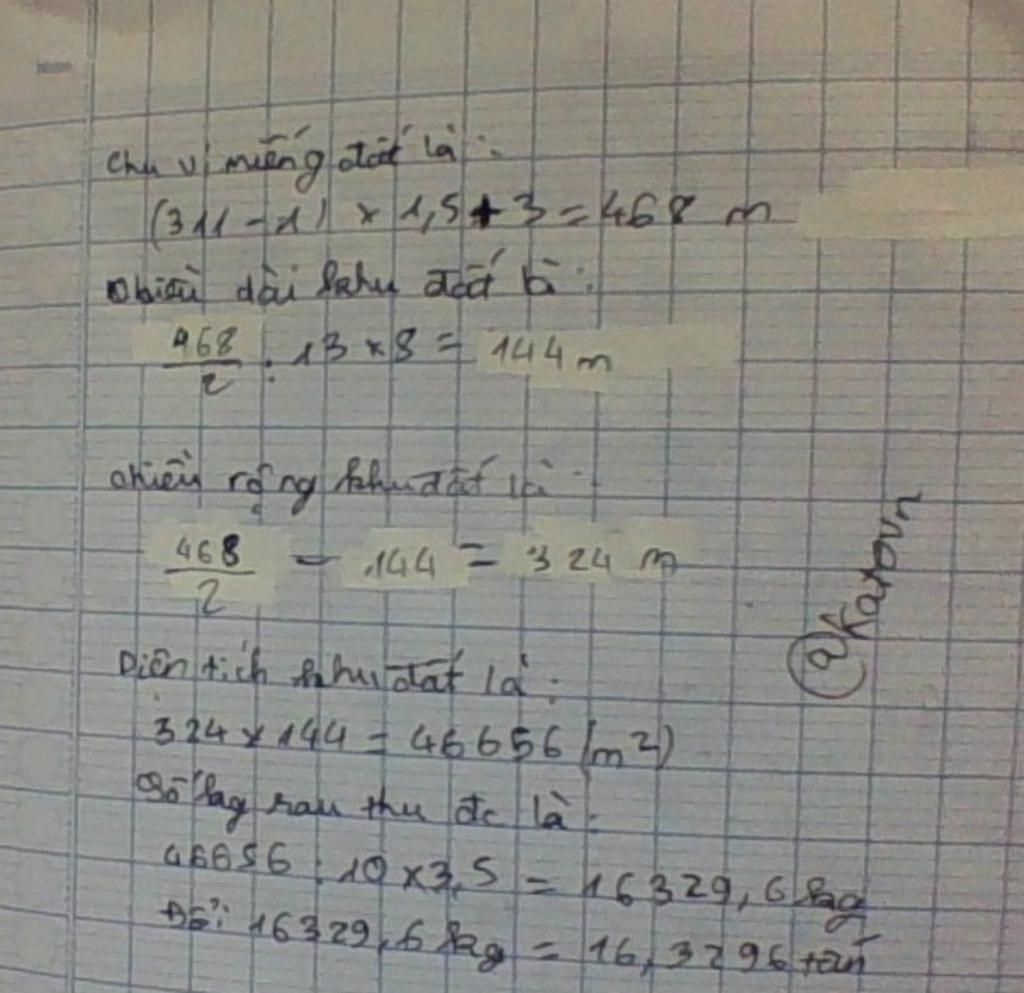 chu vi miếng đất là :
(311 - 1) × 1,5 + 3 = 468 m
Chiều dài khu đất là :
468/2 : 13 × 8 = 144 m
chiều rộng khu đất là :
468/2 - 144 = 324 m
Diện tích khu đất là :
324 × 144 = 46656 (m²)
Số kg rau thu đc là :
46656 : 10 × 3,5 = 16329,6 kg
Đổi: 16329,6 kg = 16,3296 tấn
@Karovn